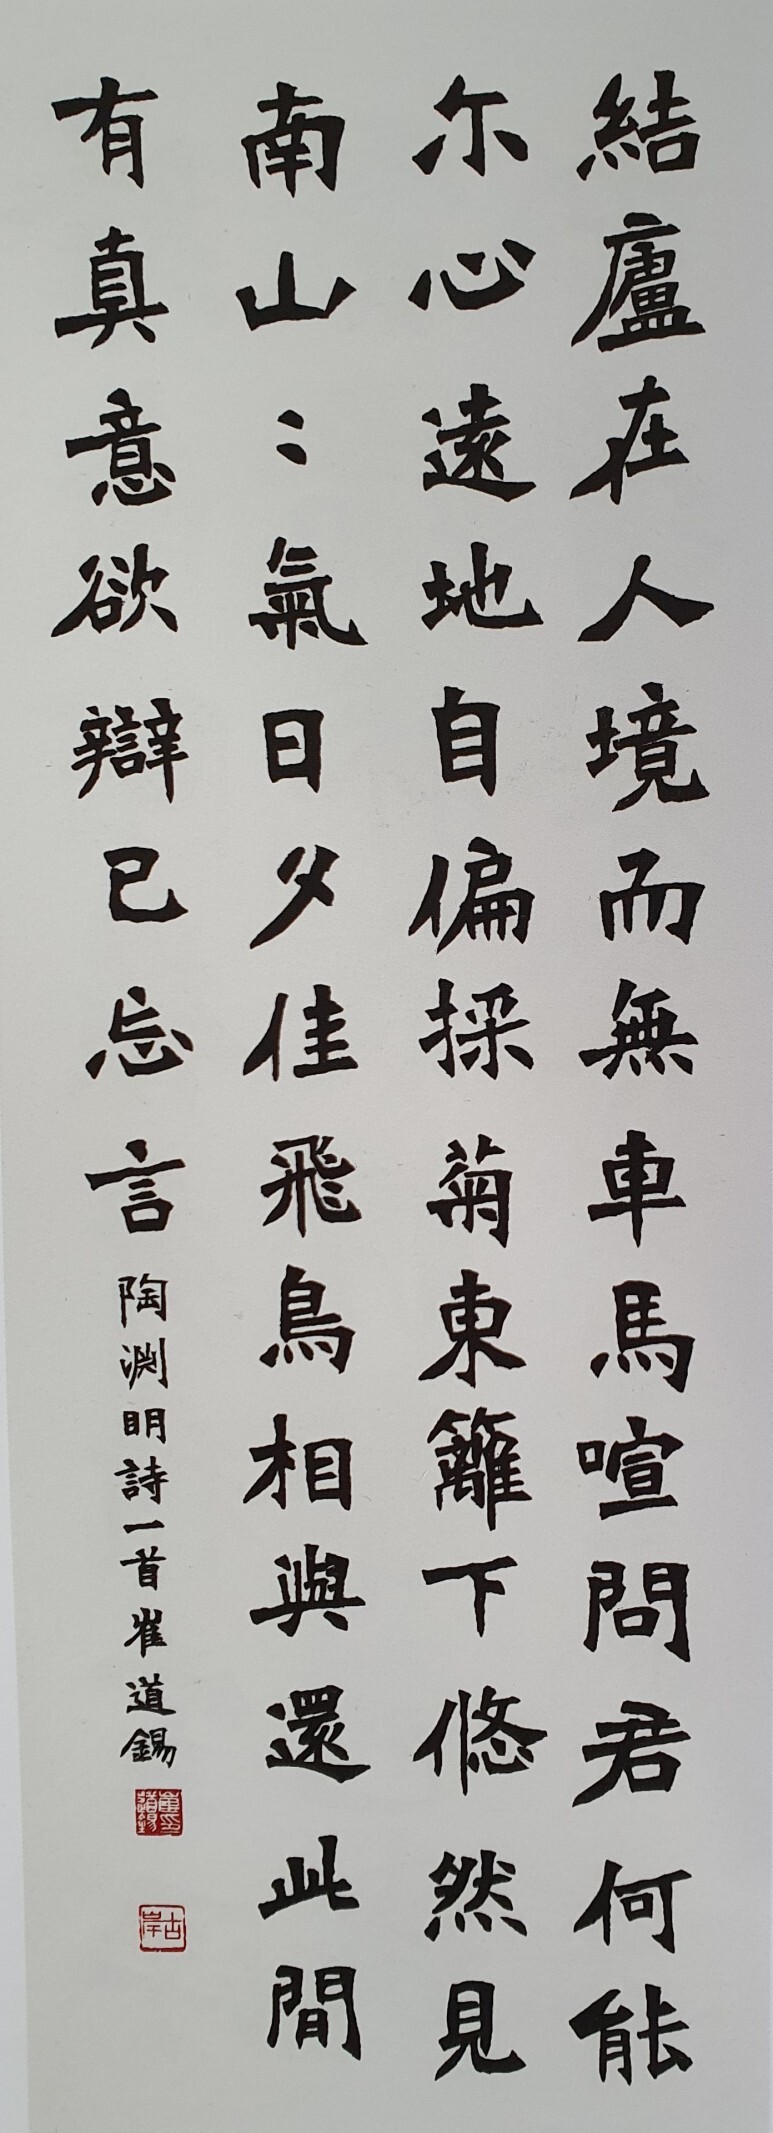 結廬在人境而無車馬喧問君何能
尔心遠地自偏採菊東籬下悠然見
南山〻氣日夕佳飛鳥相與還此間
有真意欲辯已忘言
陶渊明詩一首崔道錫
古岸